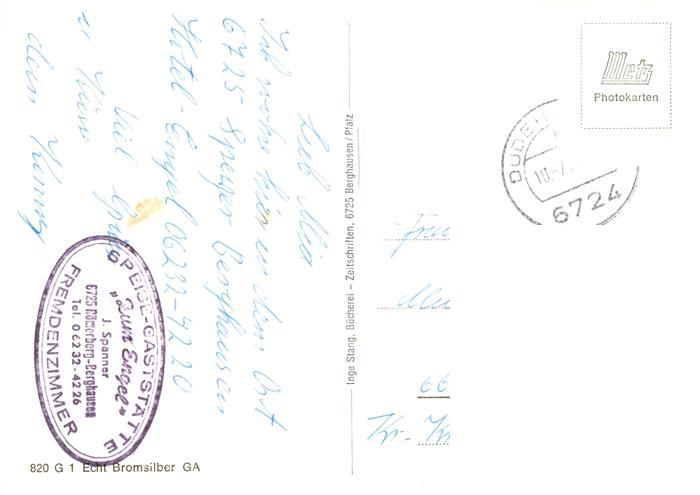 Lieb Mia
Ich wohne hier in dem Ort
6725 Speyer Berghausen
Hotel-Engel 06232-4220
Viel Grüße
er Küsse
dein Henny
SPEISE-GASTSTÄTTE
"Zum Engel"
J. Spanner
6725 Römerberg-Berghausen
Tel. 06232-4226
FREMDENZIMMER
820 G 1 Echt Bromsilber GA
Inge Stang, Bücherei – Zeitschriften, 6725 Berghausen/Pfalz
Metz
Photokarten
DUDEN
6724
Frau
66
Kr. Kr